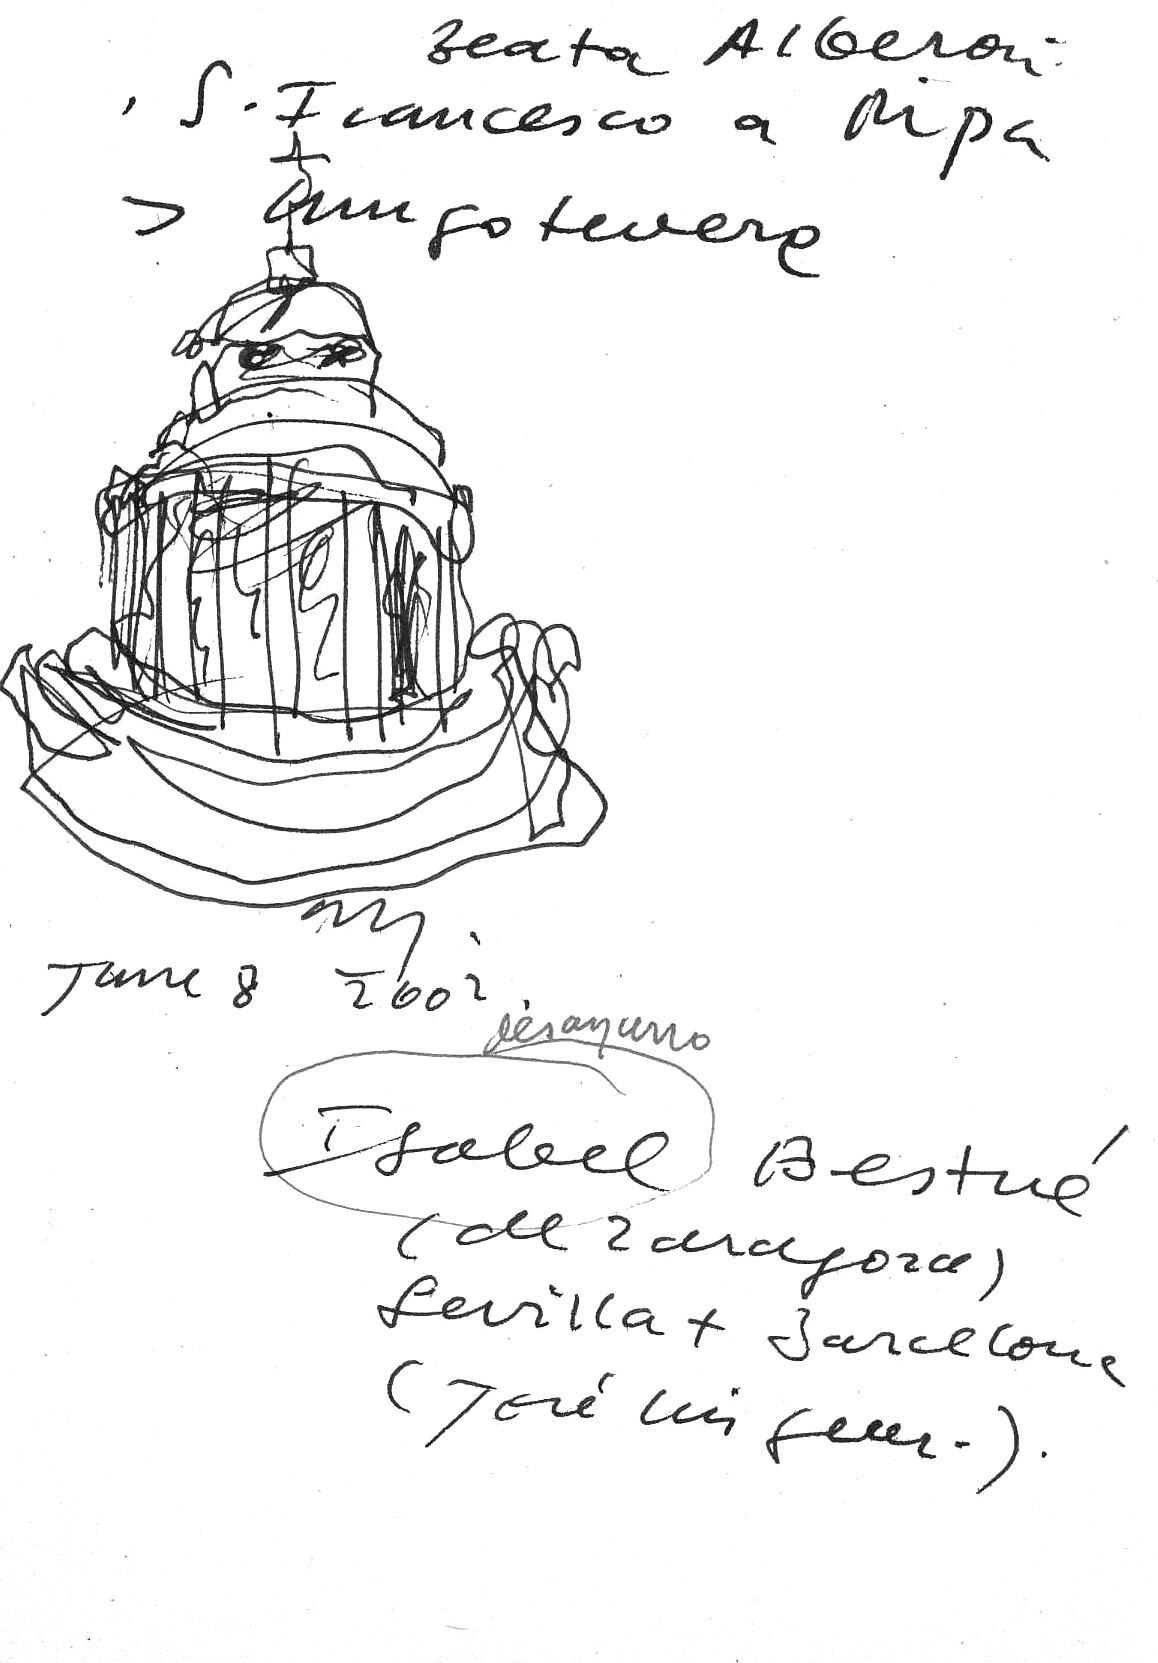 Beata Alberoni
. S. Francesco a Ripa
> Lungotevere
June 8 2002
desayuno
Isabel Bestué
(de Zaragoza)
Sevilla + Barcelona
(José Luis